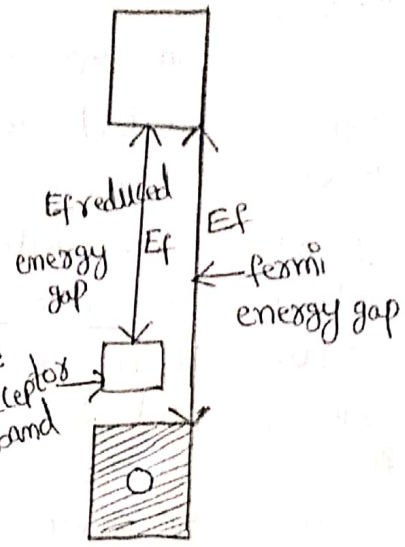 Ef reduced
energy
gap
Ef
Ef
fermi
energy gap
ceptor
band